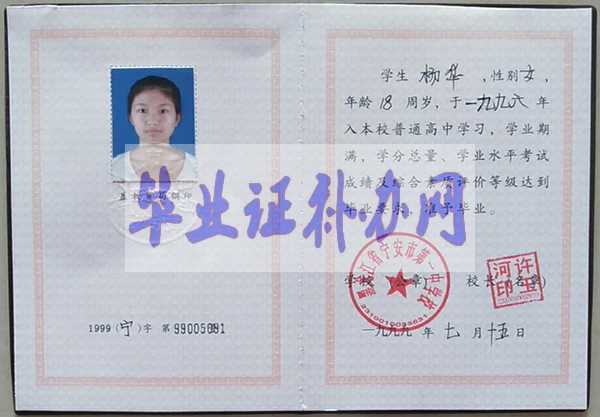 盖钢印
1999 (宁) 字 第 99005081
毕业证补办网
学生 杨华 , 性别 女 ,
年龄 18 周岁, 于 一九九六 年
入本校普通高中学习, 学业期
满, 学分总量、学业水平考试
成绩及综合素质评价等级达到
毕业要求, 准予毕业。
学校 (公章) 校长 (名章)
黑龙江省宁安市第一中学校
2310010093631
许玉河印
一九九九 年 七 月 十五 日